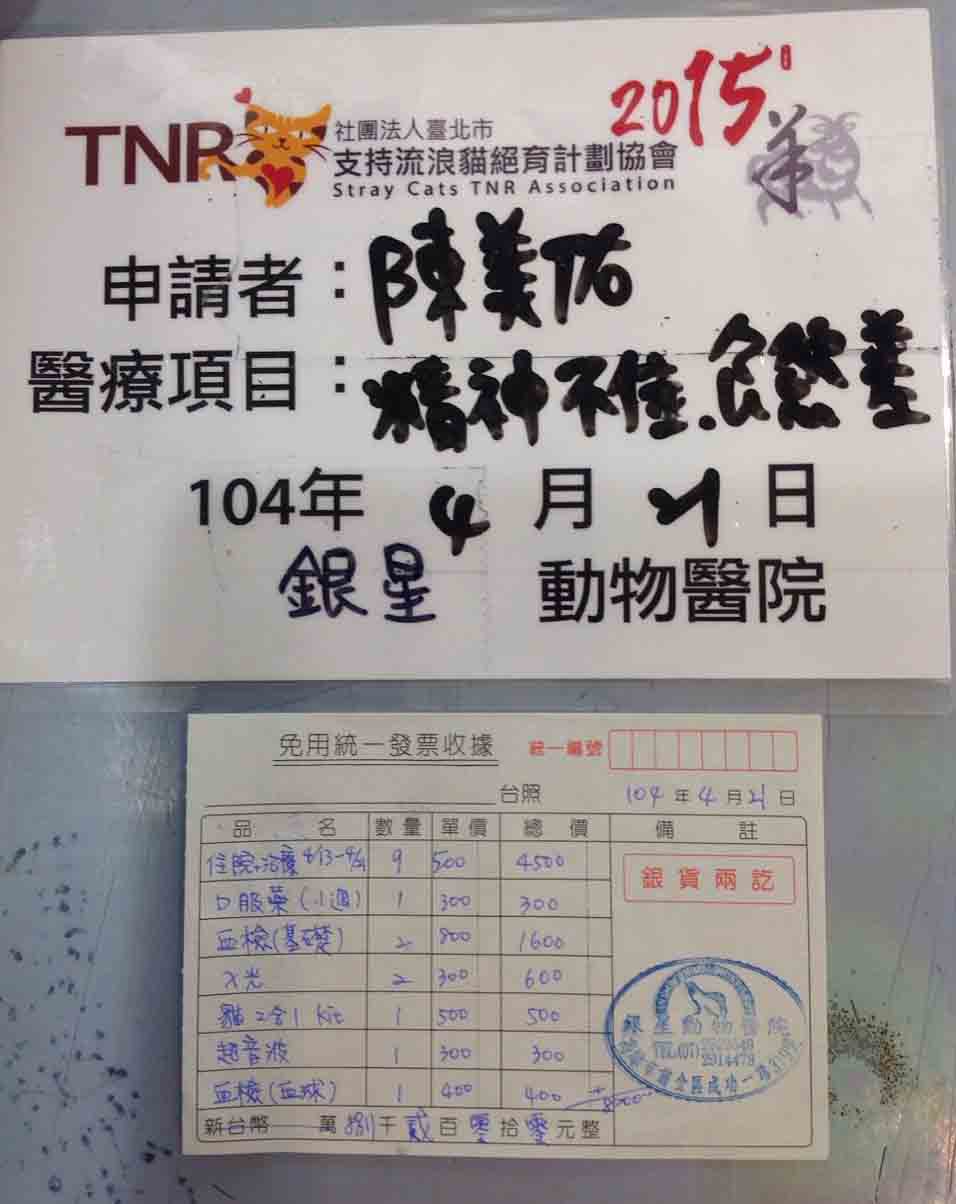 TNR 社團法人臺北市
支持流浪貓絕育計劃協會
Stray Cats TNR Association
2015 羊
申請者：陳美佑
醫療項目：精神不佳.食慾差
104年 4 月 21 日
銀星 動物醫院
免用統一發票收據 統一編號
台照 104 年 4 月 21 日
品 名 數量 單價 總 價 備 註
住院+治療 4/13-4/21 9 500 4500
銀貨兩訖
口服藥(1週) 1 300 300
血檢(基礎) 2 800 1600
X光 2 300 600
貓2合1 kit 1 500 500
超音波 1 300 300
血檢(血球) 1 400 400
銀星動物醫院
TEL:(07)
2914479
前金區成功一路
新台幣 萬 捌 千 貳 百 零 拾 零 元整